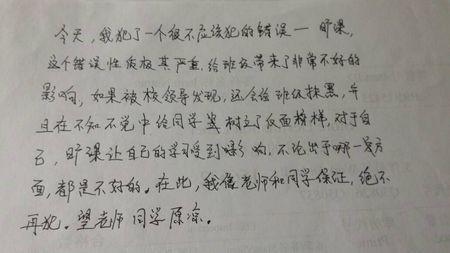 今天，我犯了一个很不应该犯的错误—旷课，
这个错误性质极其严重，给班级带来了非常不好的
影响，如果被校领导发现，还会给班级抹黑，并
且在不知不觉中给同学树立了反面榜样，对于自
己，旷课让自己的学习受到影响，不论出于哪一方
面，都是不好的。在此，我像老师和同学保证，绝不
再犯。望老师同学原谅。